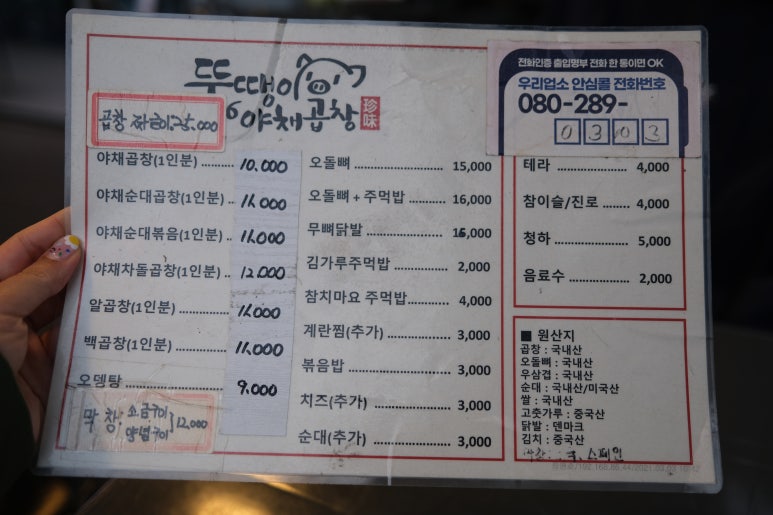 뚜땡이
야채곱창
珍味
곱창
25,000
야채곱창(1인분) 10,000
야채순대곱창(1인분) 11,000
야채순대볶음(1인분) 11,000
야채차돌곱창(1인분) 12,000
알곱창(1인분) 11,000
백곱창(1인분) 11,000
오뎅탕 9,000
막창: 소금구이 양념구이 12,000
오돌뼈 15,000
오돌뼈 + 주먹밥 16,000
무뼈닭발 16,000
김가루주먹밥 2,000
참치마요 주먹밥 4,000
계란찜(추가) 3,000
볶음밥 3,000
치즈(추가) 3,000
순대(추가) 3,000
전화인증 출입명부 전화 한 통이면 OK
우리업소 안심콜 전화번호
080-289-
0303
테라 4,000
참이슬/진로 4,000
청하 5,000
음료수 2,000
■ 원산지
곱창 : 국내산
오돌뼈 : 국내산
우삼겹 : 국내산
순대 : 국내산/미국산
쌀 : 국내산
고춧가루 : 중국산
닭발 : 덴마크
김치 : 중국산
스페인